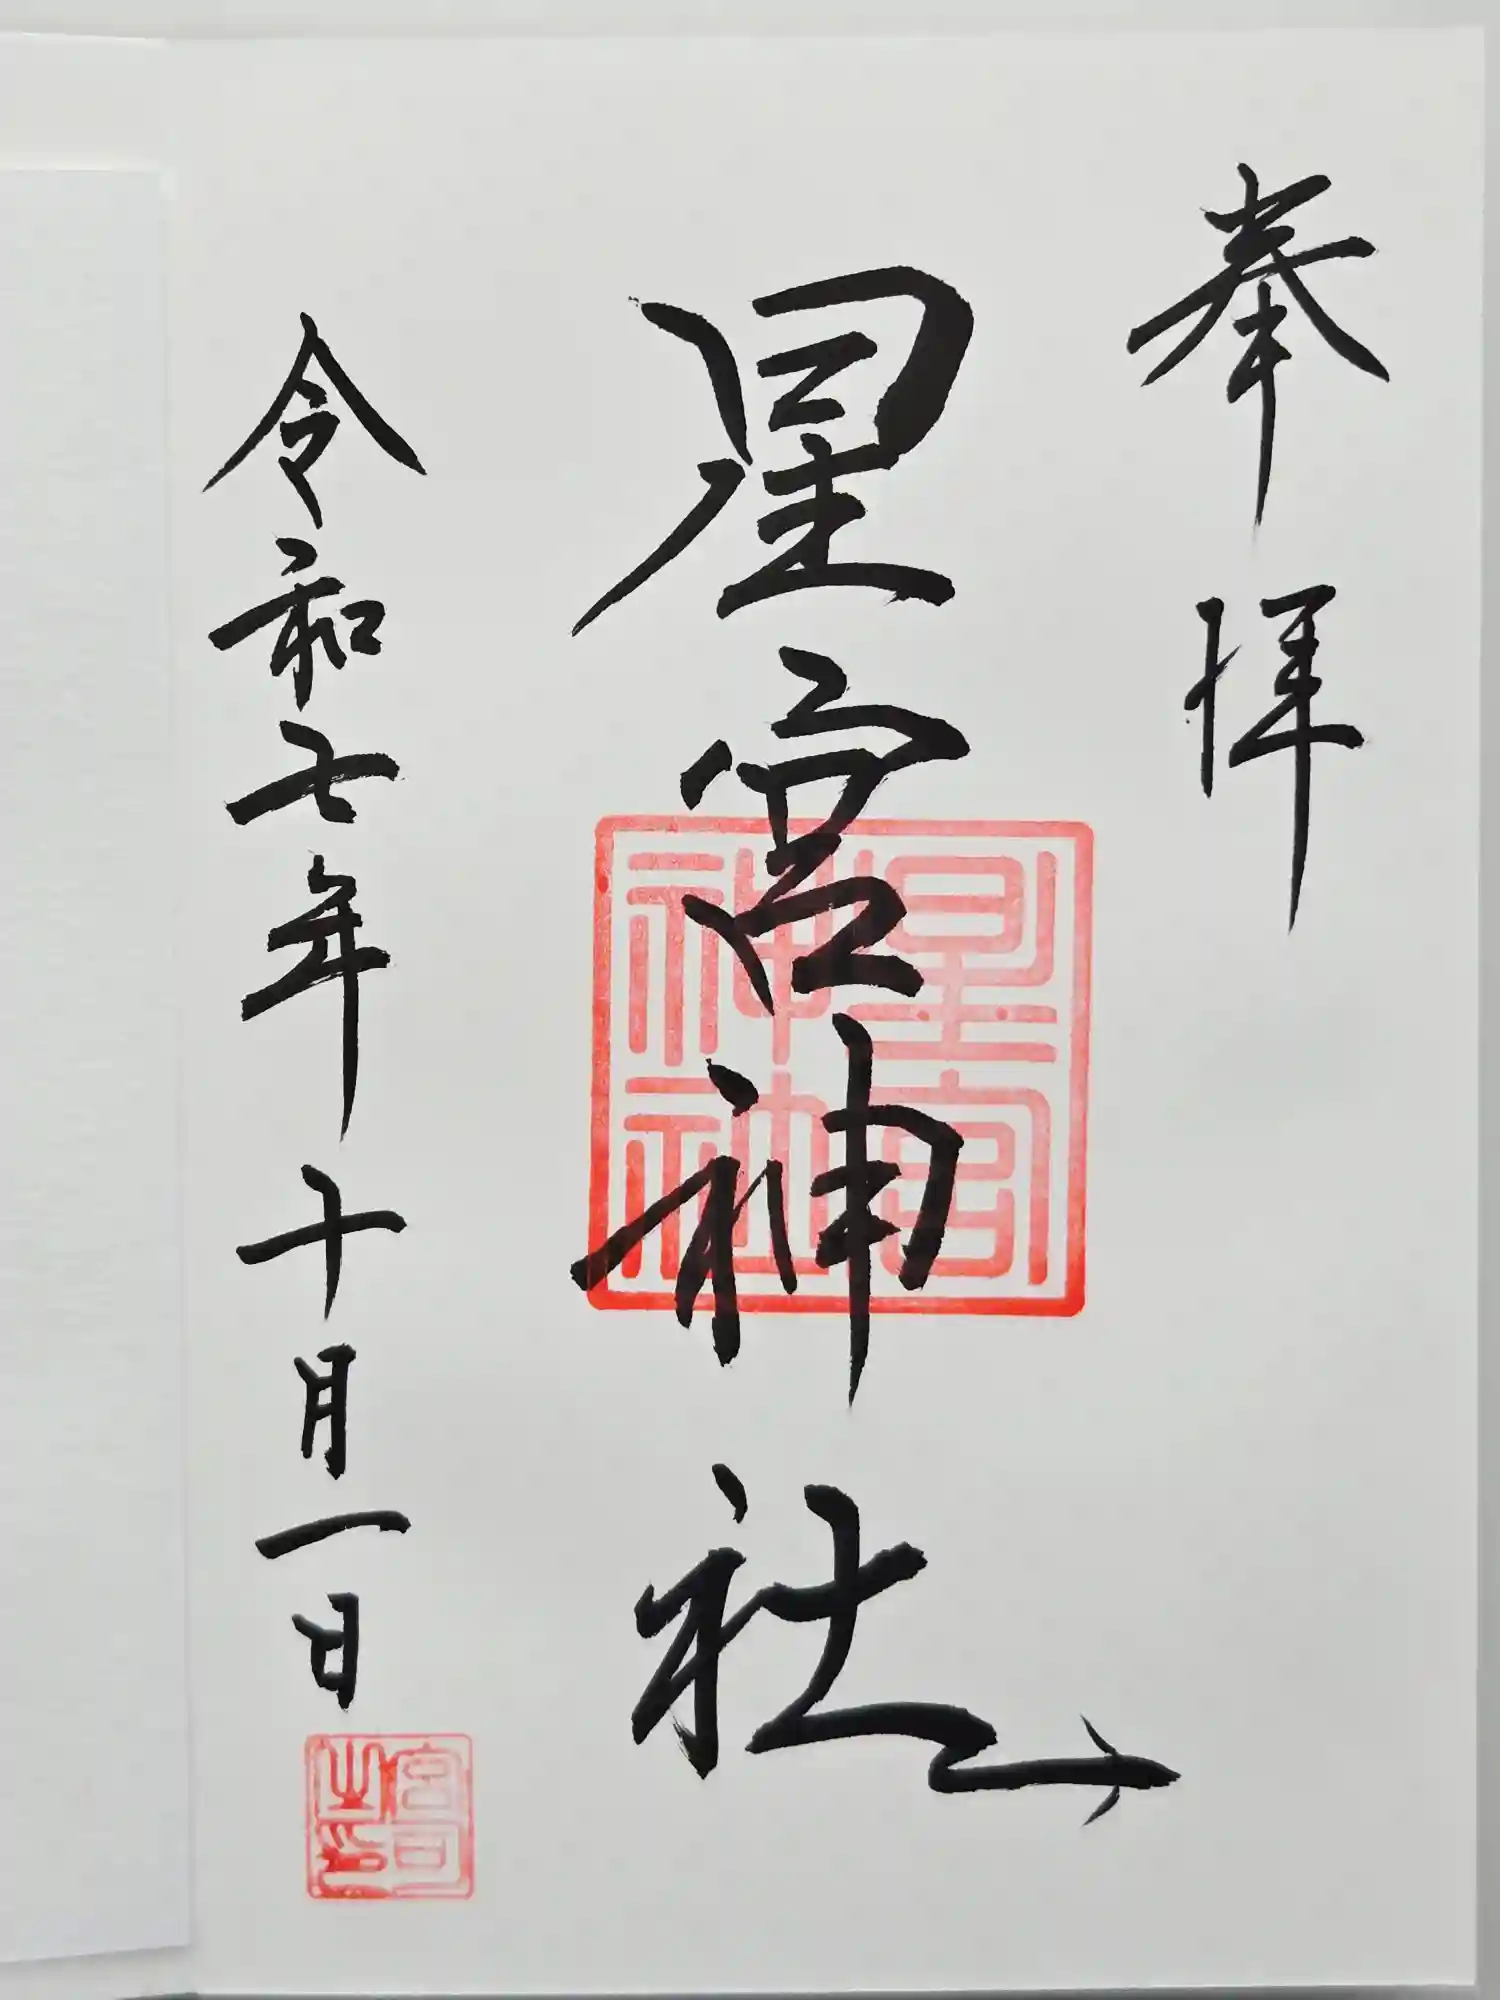 奉拝
星宮神社
星宮神社
令和七年十月一日
宮司之印